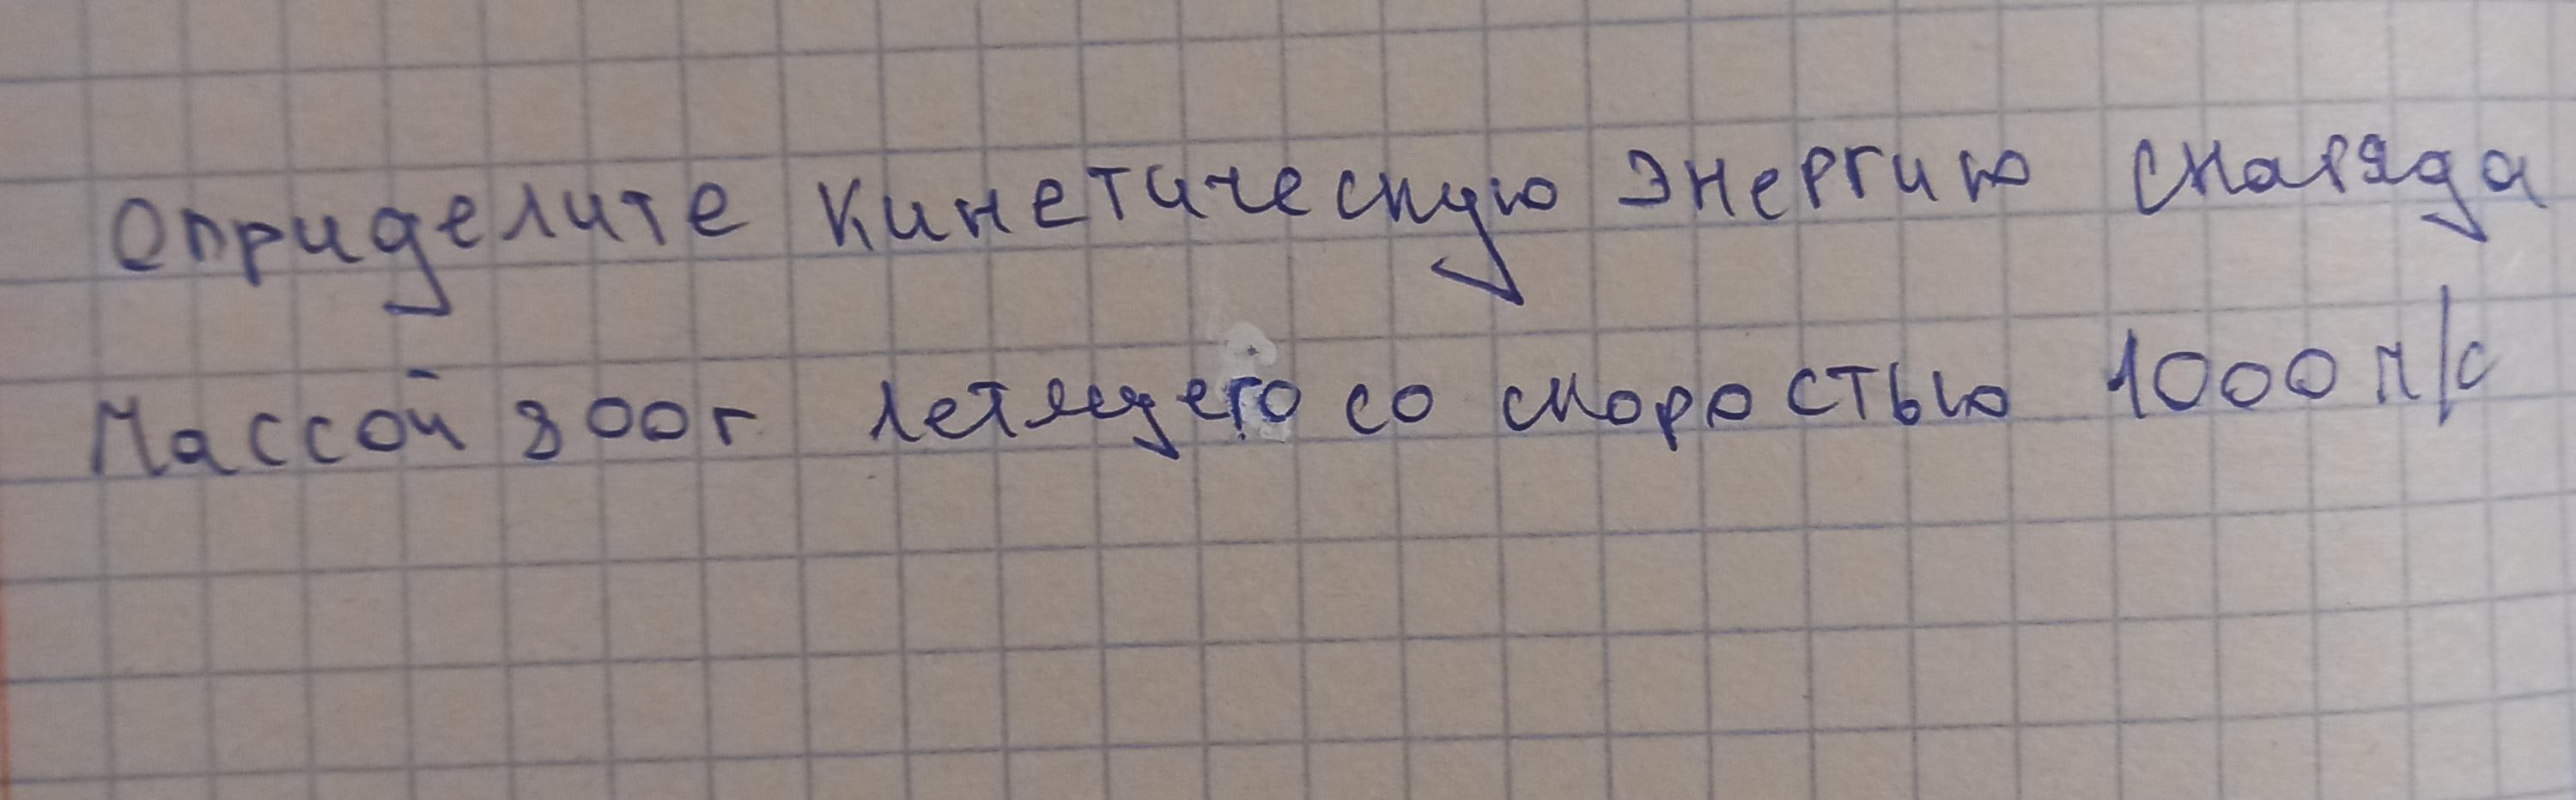 Определите кинетическую энергию снаряда
Массой 800г летящего со скоростью 1000 м/с